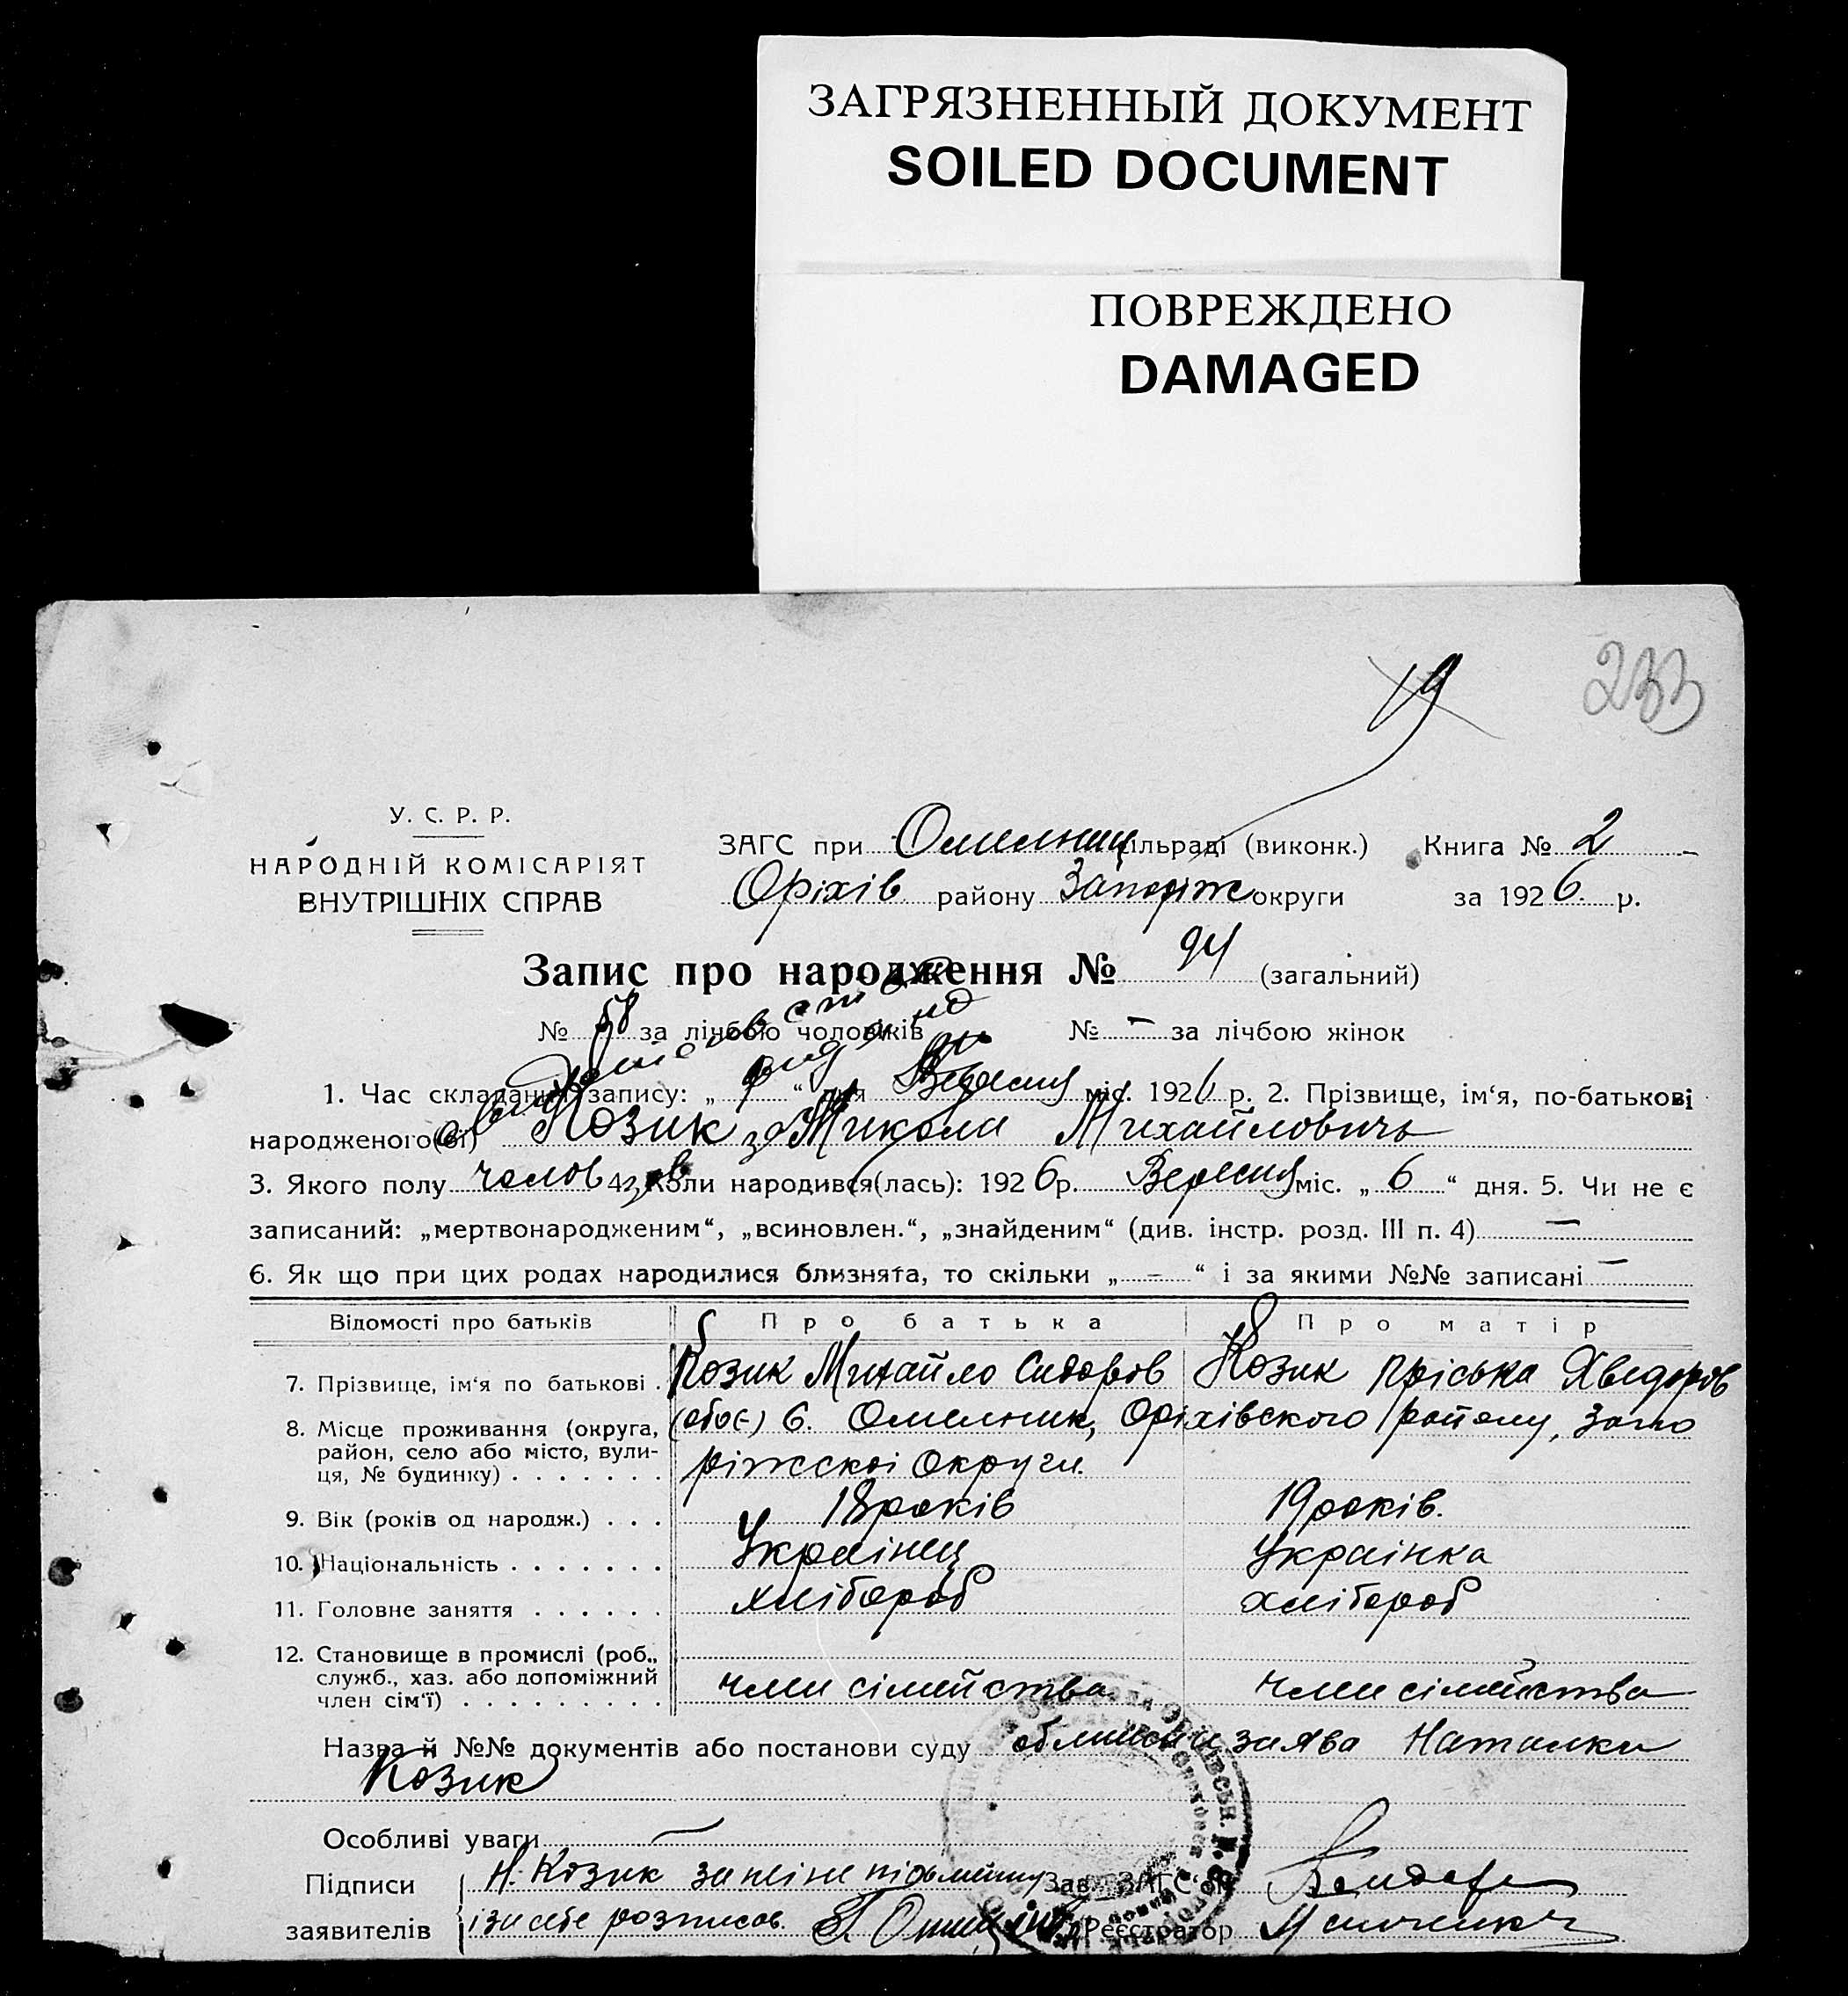 ЗАГРЯЗНЕННЫЙ ДОКУМЕНТ
SOILED DOCUMENT
ПОВРЕЖДЕНО
DAMAGED
19
233
У. С. Р. Р.
НАРОДНІЙ КОМІСАРІЯТ
ВНУТРІШНІХ СПРАВ
ЗАГС при Омельниц сільраді (виконк.) Книга № 2
Оріхів району Запоріж округи за 1926 р.
Запис про народження № 94 (загальний)
№ 58 за лічбою чоловіків № – за лічбою жінок
1. Час складання запису: „ 9 “ дня Вересня міс. 1926 р. 2. Прізвище, ім‘я, по-батькові
народженого(ої) Козик Микола Михайловичь
3. Якого полу чолов 4. Коли народився(лась): 1926 р. Вересня міс. „ 6 “ дня. 5. Чи не є
записаний: „мертвонародженим“, „всиновлен.“, „знайденим“ (див. інстр. розд. III п. 4) —
6. Як що при цих родах народилися близнята, то скільки „ – “ і за якими №№ записані —
Відомості про батьків Про батька Про матір
7. Прізвище, ім‘я по батькові . Козик Михайло Сидоров Козик Пріська Хведоров
8. Місце проживання (округа, район, село або місто, вулиця, № будинку) . . . . . . . (обоє) с. Омельник, Оріхівского району, Запо
ріжскої Округи.
9. Вік (років од народж.) . . . 18 років 19 років.
10. Національність . . . . . . . Українець Українка
11. Головне заняття . . . . . . хлібороб хлібороб
12. Становище в промислі (роб., служб., хаз. або допоміжний член сім‘ї) . . . . . . . . . член сімейства член сімейства
Назва й №№ документів або постанови суду заява Наталки
Козик
Особливі уваги —
Підписи Н. Козик Зав. ЗАГС‘ом
заявителів і за себе розписав. Реєстратор